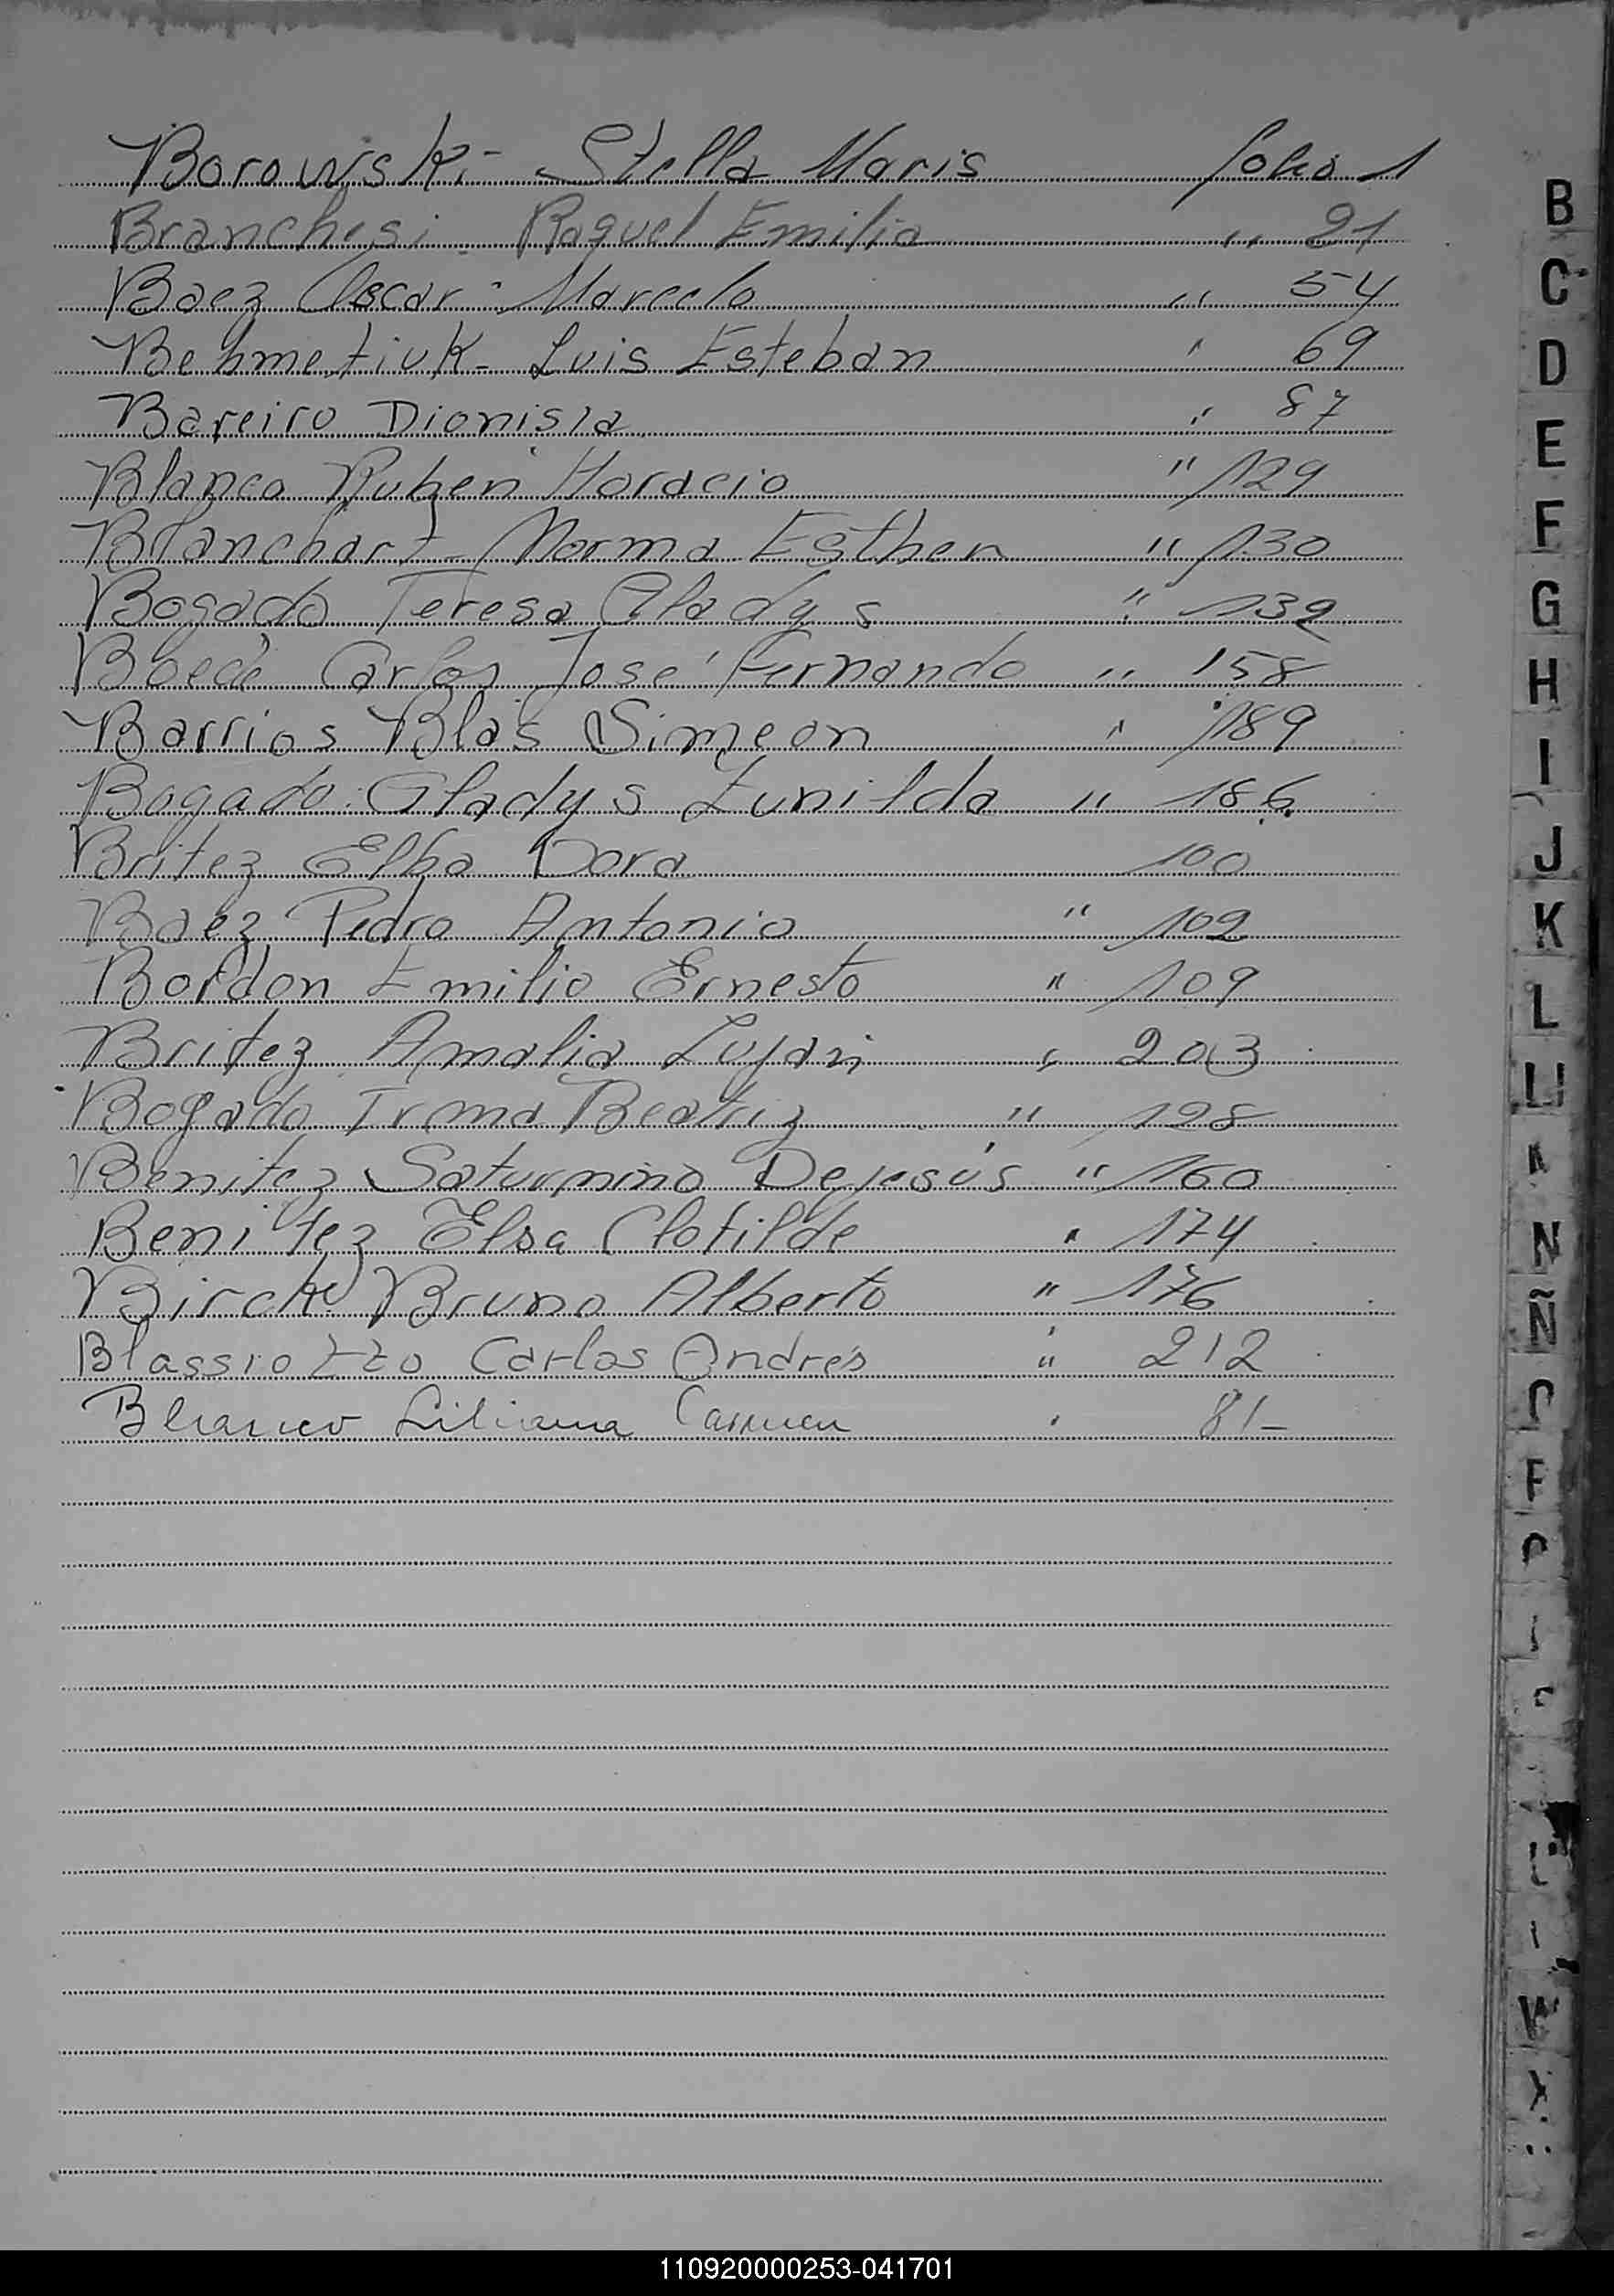 Borowski - Stella Maris folio 1
Branchesi - Raquel Emilia " 21
Baez Oscar - Marcelo " 54
Behmetiuk - Luis Esteban " 69
Bareiro Dionisia " 87
Blanco Ruben Horacio " 129
Blanchart - Norma Esther " 130
Bogado Teresa Gladys " 139
Carlos José Fernando " 158
Barrios Blas Simeon " 189
Bogado Gladys Zunilda " 186
Britez Elba Dora 100
Baez Pedro Antonio " 102
Bordon Emilio Ernesto " 109
Britez Amalia Lujan " 203
Bogado Irma Beatriz " 128
Benitez Saturnino Dejesús " 160
Benitez Elsa Clotilde " 174
Birck Bruno Alberto " 176
Blassiozzo Carlos Andrés " 212
Blanco Liliana Carmen " 81-
B
C
D
E
F
G
H
I
J
K
L
LL
N
Ñ
W
X
110920000253-041701